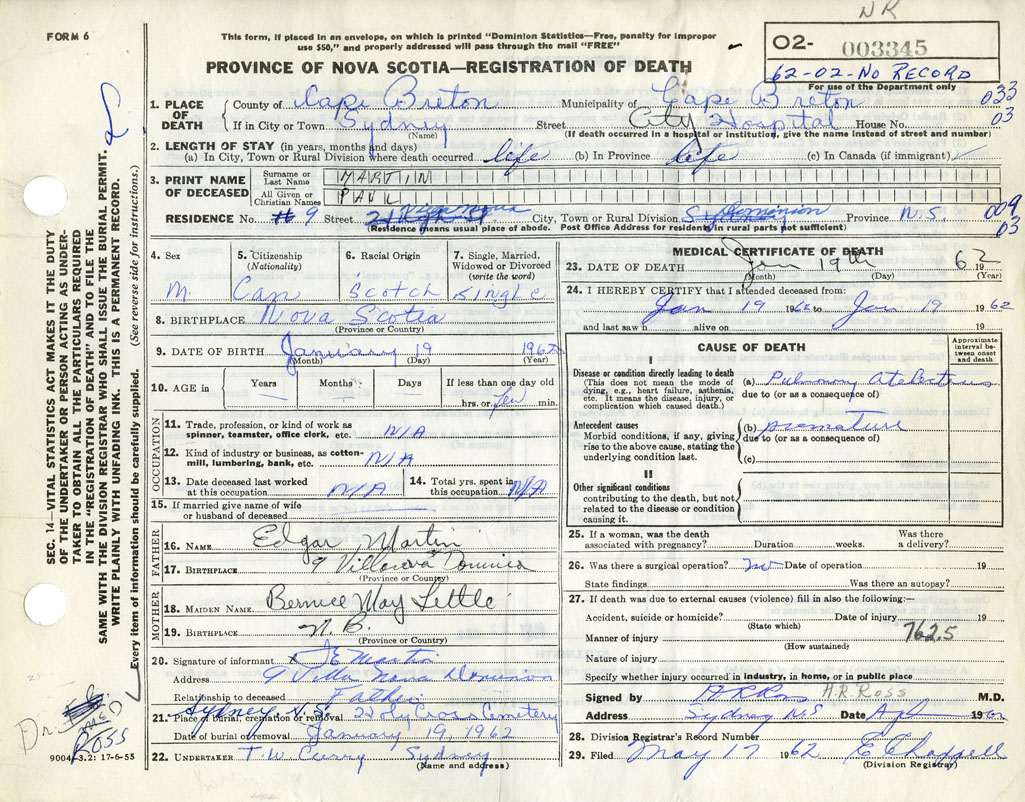 NR
FORM 6
This form, if placed in an envelope, on which is printed "Dominion Statistics—Free, penalty for improper
use $50," and properly addressed will pass through the mail "FREE"
02- 003345
62-02-NO RECORD
For use of the Department only
PROVINCE OF NOVA SCOTIA—REGISTRATION OF DEATH
1. PLACE OF DEATH County of Cape Breton Municipality of Cape Breton 033
If in City or Town Sydney Street City Hospital House No. 03
(Name) (If death occurred in a hospital or institution, give the name instead of street and number)
2. LENGTH OF STAY (in years, months and days)
(a) In City, Town or Rural Division where death occurred life (b) In Province life (c) In Canada (if immigrant)
3. PRINT NAME OF DECEASED Surname or Last Name MARTIN
All Given or Christian Names PAUL
RESIDENCE No. #9 Street Villa Nova City, Town or Rural Division Dominion Province N.S. 009
03
(Residence means usual place of abode. Post Office Address for residents in rural parts not sufficient)
4. Sex M
5. Citizenship (Nationality) Can
6. Racial Origin Scotch
7. Single, Married, Widowed or Divorced (write the word) Single
8. BIRTHPLACE Nova Scotia
(Province or Country)
9. DATE OF BIRTH January 19 1962
(Month) (Day) (Year)
10. AGE in Years Months Days If less than one day old
hrs. or few min.
OCCUPATION
11. Trade, profession, or kind of work as
spinner, teamster, office clerk, etc. N/A
12. Kind of industry or business, as cotton-
mill, lumbering, bank, etc. N/A
13. Date deceased last worked
at this occupation N/A
14. Total yrs. spent in
this occupation N/A
15. If married give name of wife
or husband of deceased
FATHER
16. NAME Edgar Martin
17. BIRTHPLACE 9 Villanova Dominion
(Province or Country)
MOTHER
18. MAIDEN NAME Bernice May Little
19. BIRTHPLACE N.B.
(Province or Country)
20. Signature of informant E Martin
Address 9 Villa Nova Dominion
Relationship to deceased Father
21. Place of burial, cremation or removal Sydney N.S. Holy Cross Cemetery
Date of burial or removal January 19, 1962
22. UNDERTAKER T.W. Curry Sydney
(Name and address)
MEDICAL CERTIFICATE OF DEATH
23. DATE OF DEATH Jan 19th 1962
(Month) (Day) (Year)
24. I HEREBY CERTIFY that I attended deceased from:
Jan 19 1962 to Jan 19 1962
and last saw h alive on 19
CAUSE OF DEATH
Approximate interval between onset and death
I
Disease or condition directly leading to death
(This does not mean the mode of
dying, e.g., heart failure, asthenia,
etc. It means the disease, injury, or
complication which caused death.)
(a) Pulmonary Atelectasis
due to (or as a consequence of)
Antecedent causes
Morbid conditions, if any, giving
rise to the above cause, stating the
underlying condition last.
(b) premature
due to (or as a consequence of)
(c)
II
Other significant conditions
contributing to the death, but not
related to the disease or condition
causing it.
25. If a woman, was the death
associated with pregnancy? Duration weeks. Was there
a delivery?
26. Was there a surgical operation? no Date of operation 19
State findings Was there an autopsy?
27. If death was due to external causes (violence) fill in also the following:—
Accident, suicide or homicide? Date of injury 19
(State which)
Manner of injury 762.5
(How sustained)
Nature of injury
Specify whether injury occurred in industry, in home, or in public place
Signed by A R Ross A.R. ROSS M.D.
Address Sydney N.S Date 1962
28. Division Registrar's Record Number
29. Filed May 17 1962 E Chappell
(Division Registrar)
SEC. 14—VITAL STATISTICS ACT MAKES IT THE DUTY
OF THE UNDERTAKER OR PERSON ACTING AS UNDER-
TAKER TO OBTAIN ALL THE PARTICULARS REQUIRED
IN THE "REGISTRATION OF DEATH" AND TO FILE THE
SAME WITH THE DIVISION REGISTRAR WHO SHALL ISSUE THE BURIAL PERMIT.
WRITE PLAINLY WITH UNFADING INK. THIS IS A PERMANENT RECORD.
Every item of information should be carefully supplied. (See reverse side for instructions.)
Dr.
ROSS
9004-3.2: 17-6-55